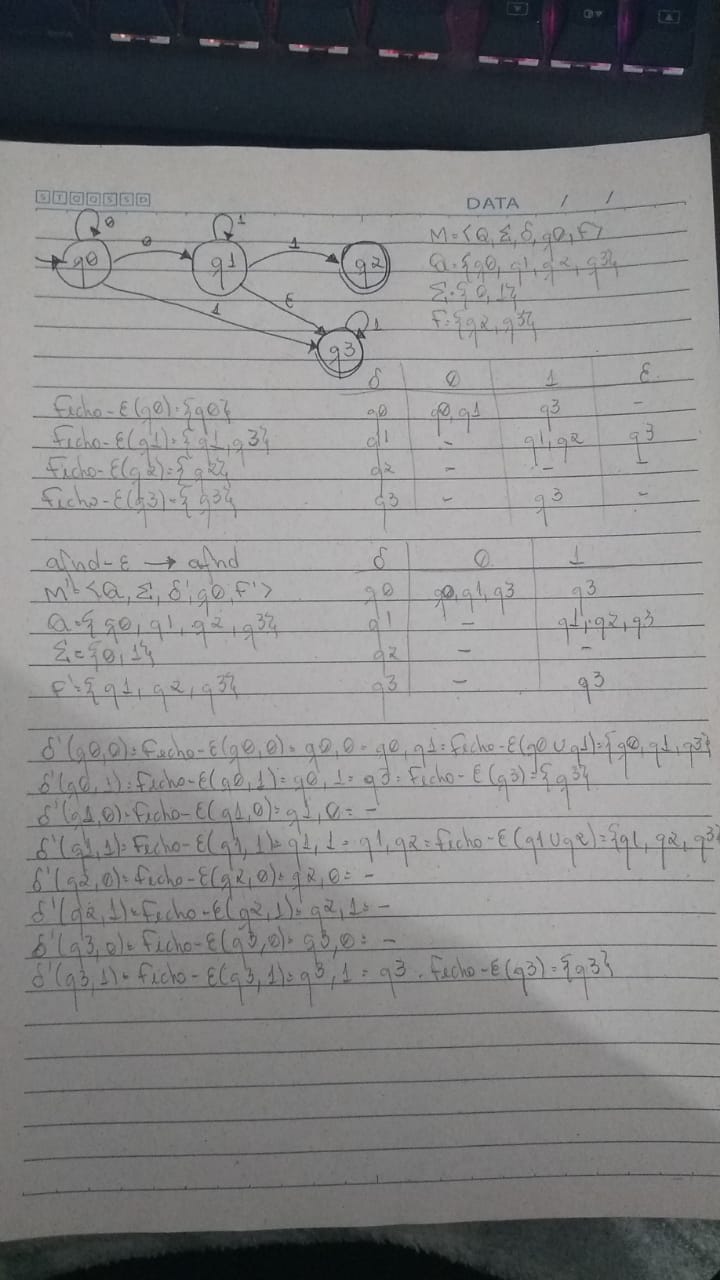 STQQSSD
DATA / /
0 1
q0 0 q1 1 q2
ε
1 q3 1
M=<Q,Σ,δ,q0,F>
Q={q0, q1, q2, q3}
Σ={0,1}
F={q2, q3}
δ 0 1 ε
fecho-ε(q0)={q0} q0 q0,q1 q3 -
fecho-ε(q1)={q1,q3} q1 - q1,q2 q3
fecho-ε(q2)={q2} q2 - - -
fecho-ε(q3)={q3} q3 - q3 -
afnd-ε → afnd δ 0 1
M'=<Q, Σ, δ', q0, F'> q0 q0,q1,q3 q3
Q={q0, q1, q2, q3} q1 - q1,q2,q3
Σ={0,1} q2 - -
F'={q1, q2, q3} q3 - q3
δ'(q0,0)=fecho-ε(q0,0)=q0,0=q0,q1=fecho-ε(q0∪q1)={q0,q1,q3}
δ'(q0,1)=fecho-ε(q0,1)=q0,1=q3=fecho-ε(q3)={q3}
δ'(q1,0)=fecho-ε(q1,0)=q1,0=-
δ'(q1,1)=fecho-ε(q1,1)=q1,1=q1,q2=fecho-ε(q1∪q2)={q1,q2,q3}
δ'(q2,0)=fecho-ε(q2,0)=q2,0=-
δ'(q2,1)=fecho-ε(q2,1)=q2,1=-
δ'(q3,0)=fecho-ε(q3,0)=q3,0=-
δ'(q3,1)=fecho-ε(q3,1)=q3,1=q3=fecho-ε(q3)={q3}